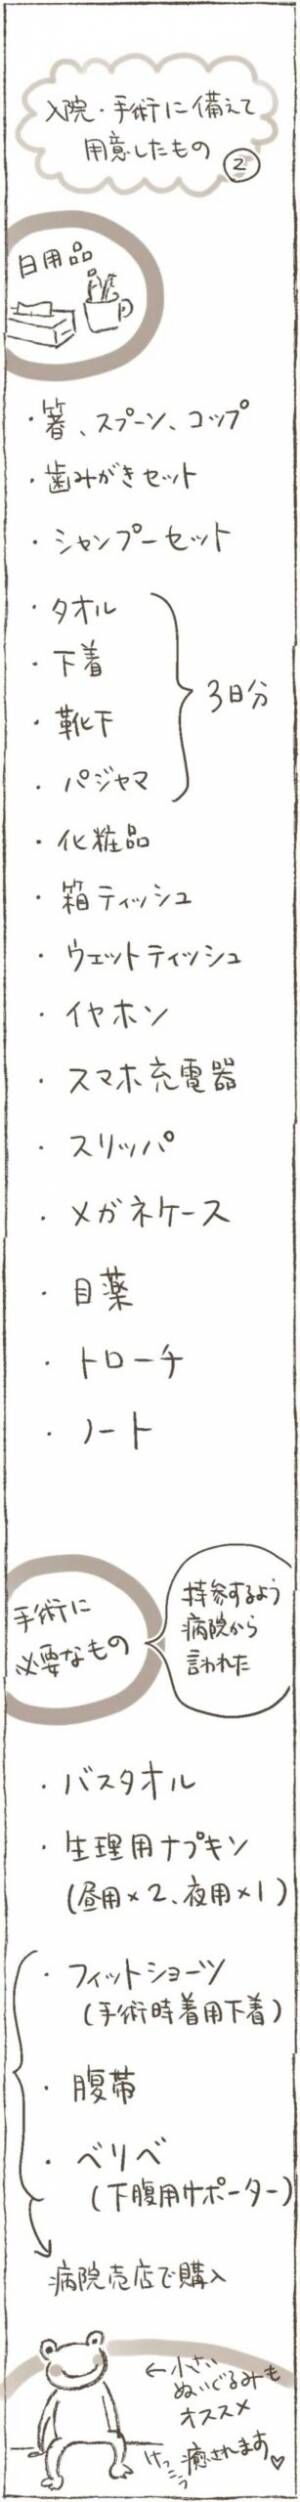 入院・手術に備えて
用意したもの ②
日用品
・箸、スプーン、コップ
・歯みがきセット
・シャンプーセット
・タオル
・下着
・靴下
・パジャマ
3日分
・化粧品
・箱ティッシュ
・ウェットティッシュ
・イヤホン
・スマホ充電器
・スリッパ
・メガネケース
・目薬
・トローチ
・ノート
手術に
必要なもの
持参するよう
病院から
言われた
・バスタオル
・生理用ナプキン
(昼用×2、夜用×1)
・フィットショーツ
(手術時着用下着)
・腹帯
・ベリベ
(下腹用サポーター)
病院売店で購入
←小さい
ぬいぐるみも
オススメ
けっこう癒されます♡